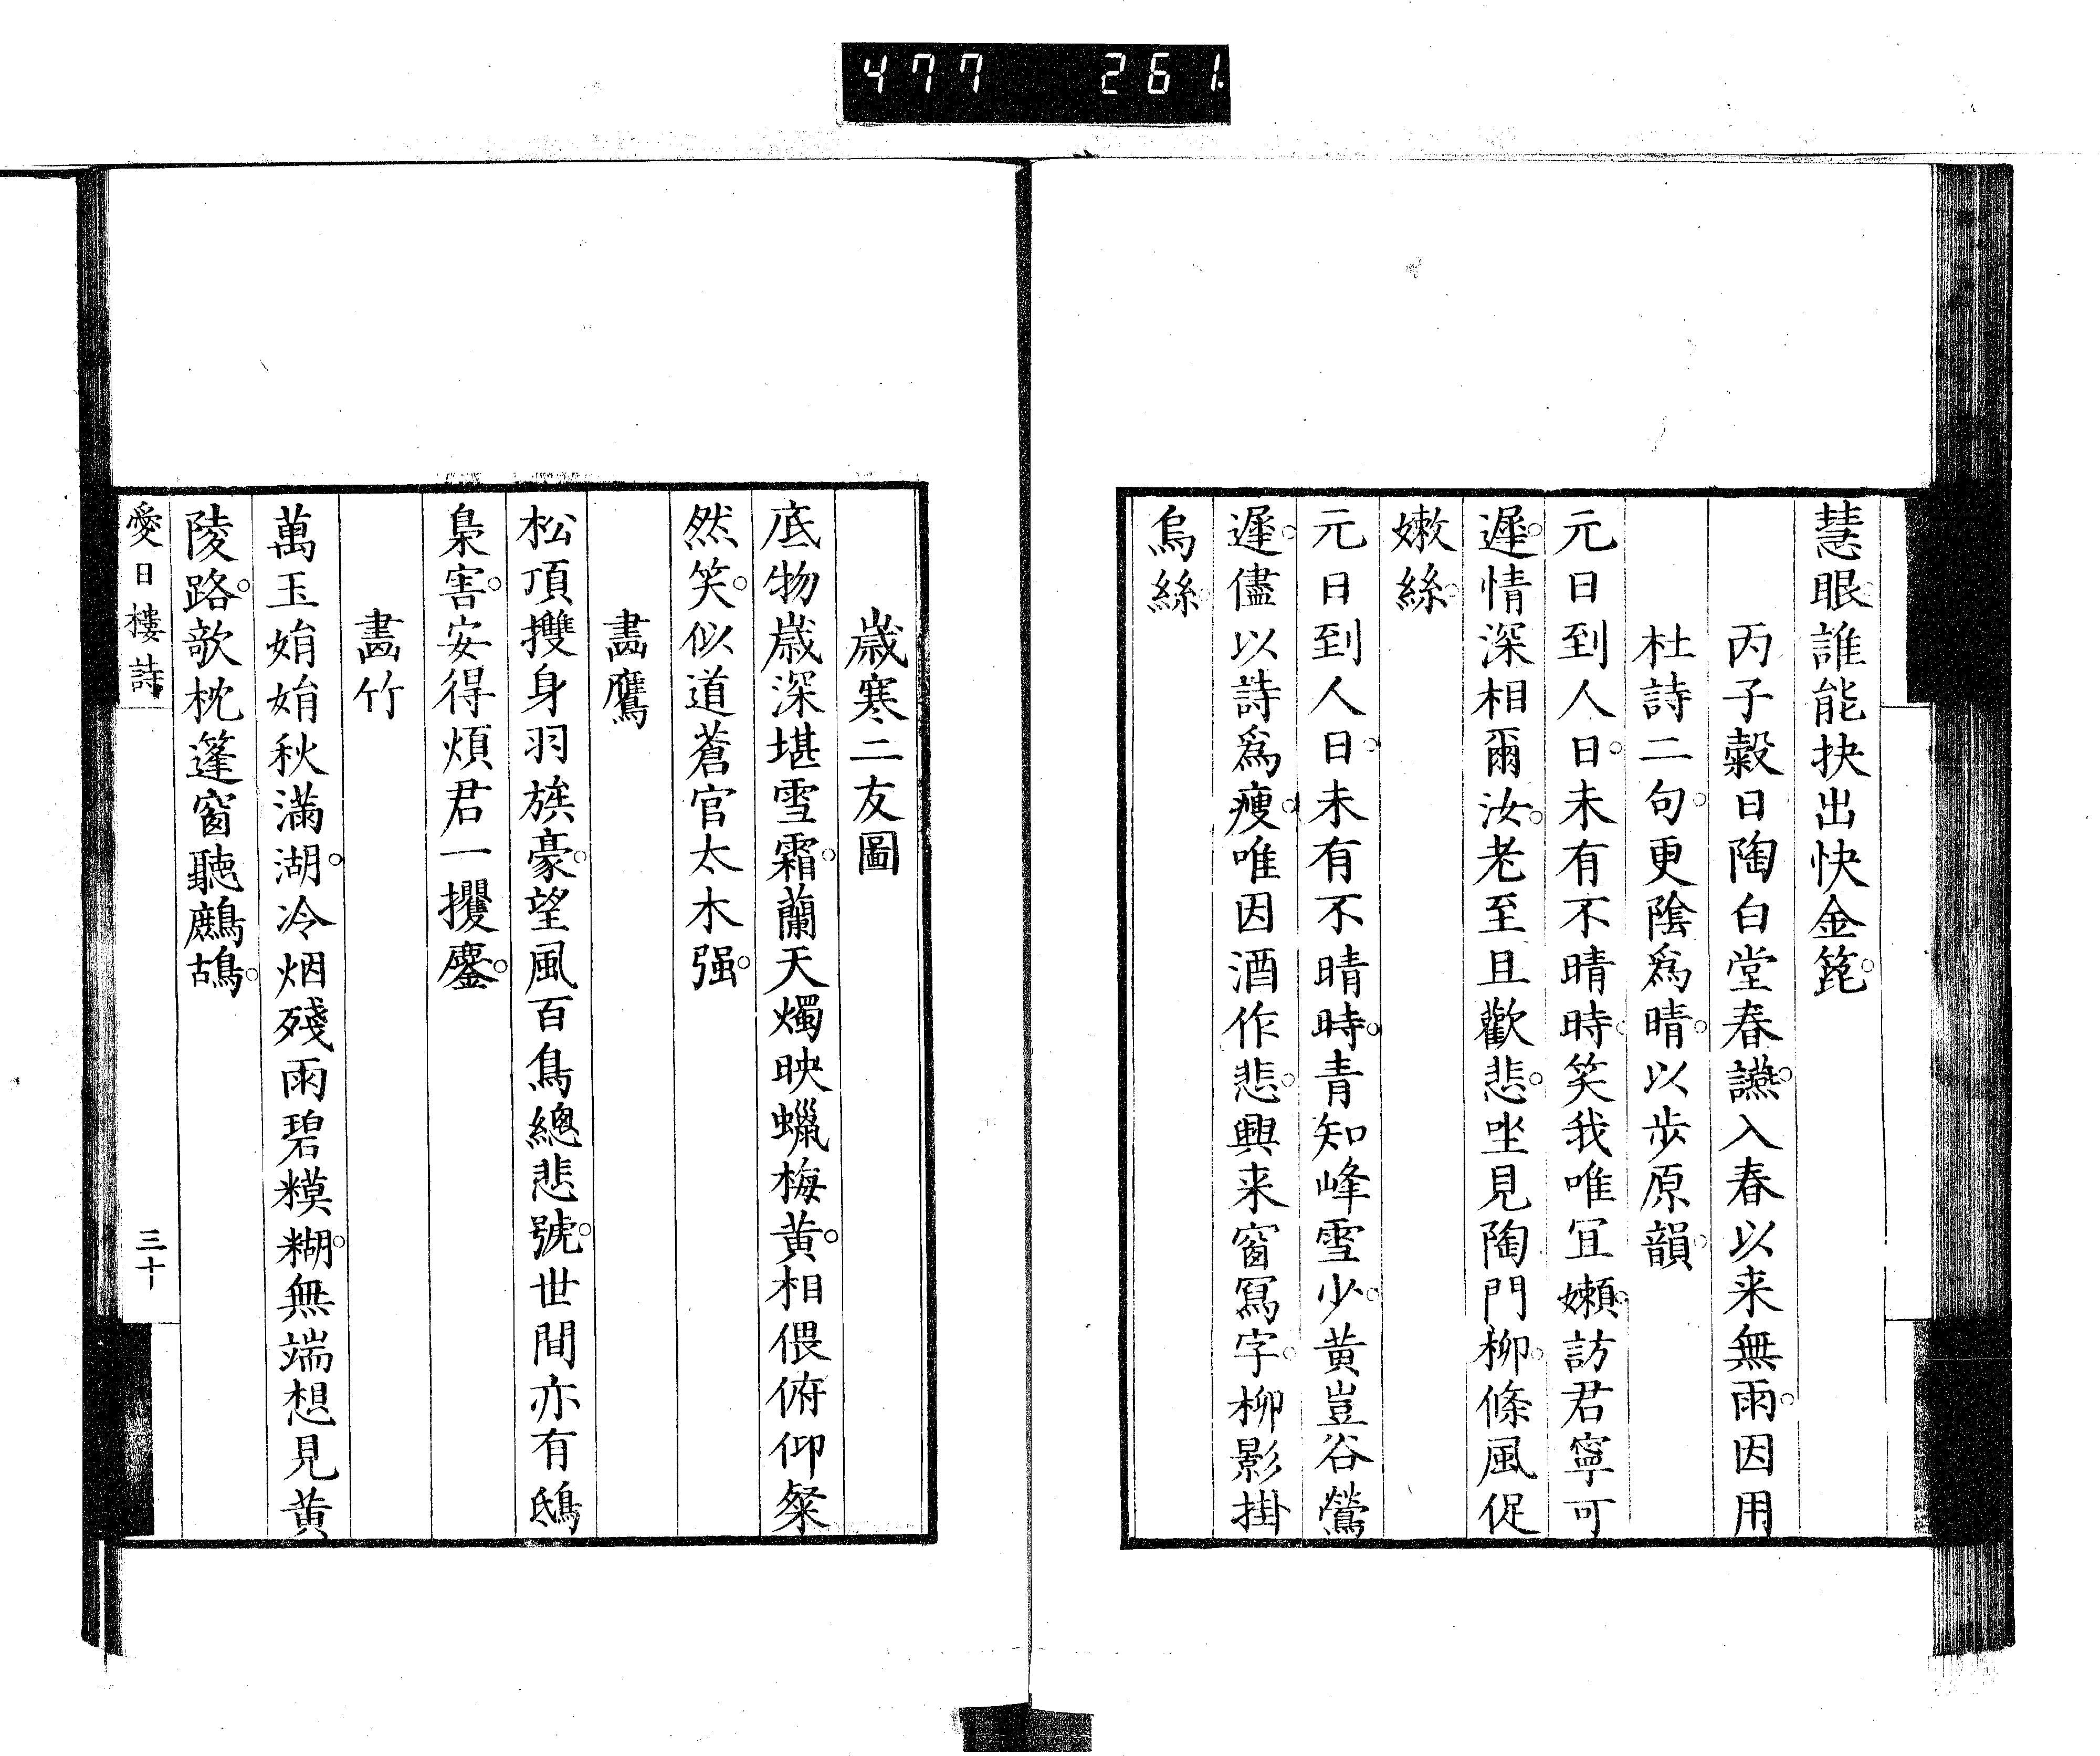 477 261
慧眼。誰能抉出快金箆。
丙子穀日陶白堂春讌。入春以来無雨。因用
杜詩二句。更陰爲晴。以步原韻。
元日到人日。未有不晴時。笑我唯冝嬾。訪君寧可
遲。情深相爾汝。老至且歡悲。坐見陶門柳。條風促
嫩絲。
元日到人日。未有不晴時。青知峰雪少。黄豈谷鶯
遲。儘以詩爲瘦。唯因酒作悲。興来窗冩字。柳影掛
烏絲。
歳寒二友圖
底物歳深堪雪霜。蘭天燭映蠟梅黄。相偎俯仰粲
然笑。似道蒼官太木强。
畵鷹
松頂攫身羽旌豪。望風百鳥總悲號。世間亦有鴟
梟害。安得煩君一攫鏖。
畵竹
萬玉娟娟秋滿湖。冷烟殘雨碧糢糊。無端想見黄
陵路。欹枕篷窗聽鷓鴣。
愛日樓詩
三十